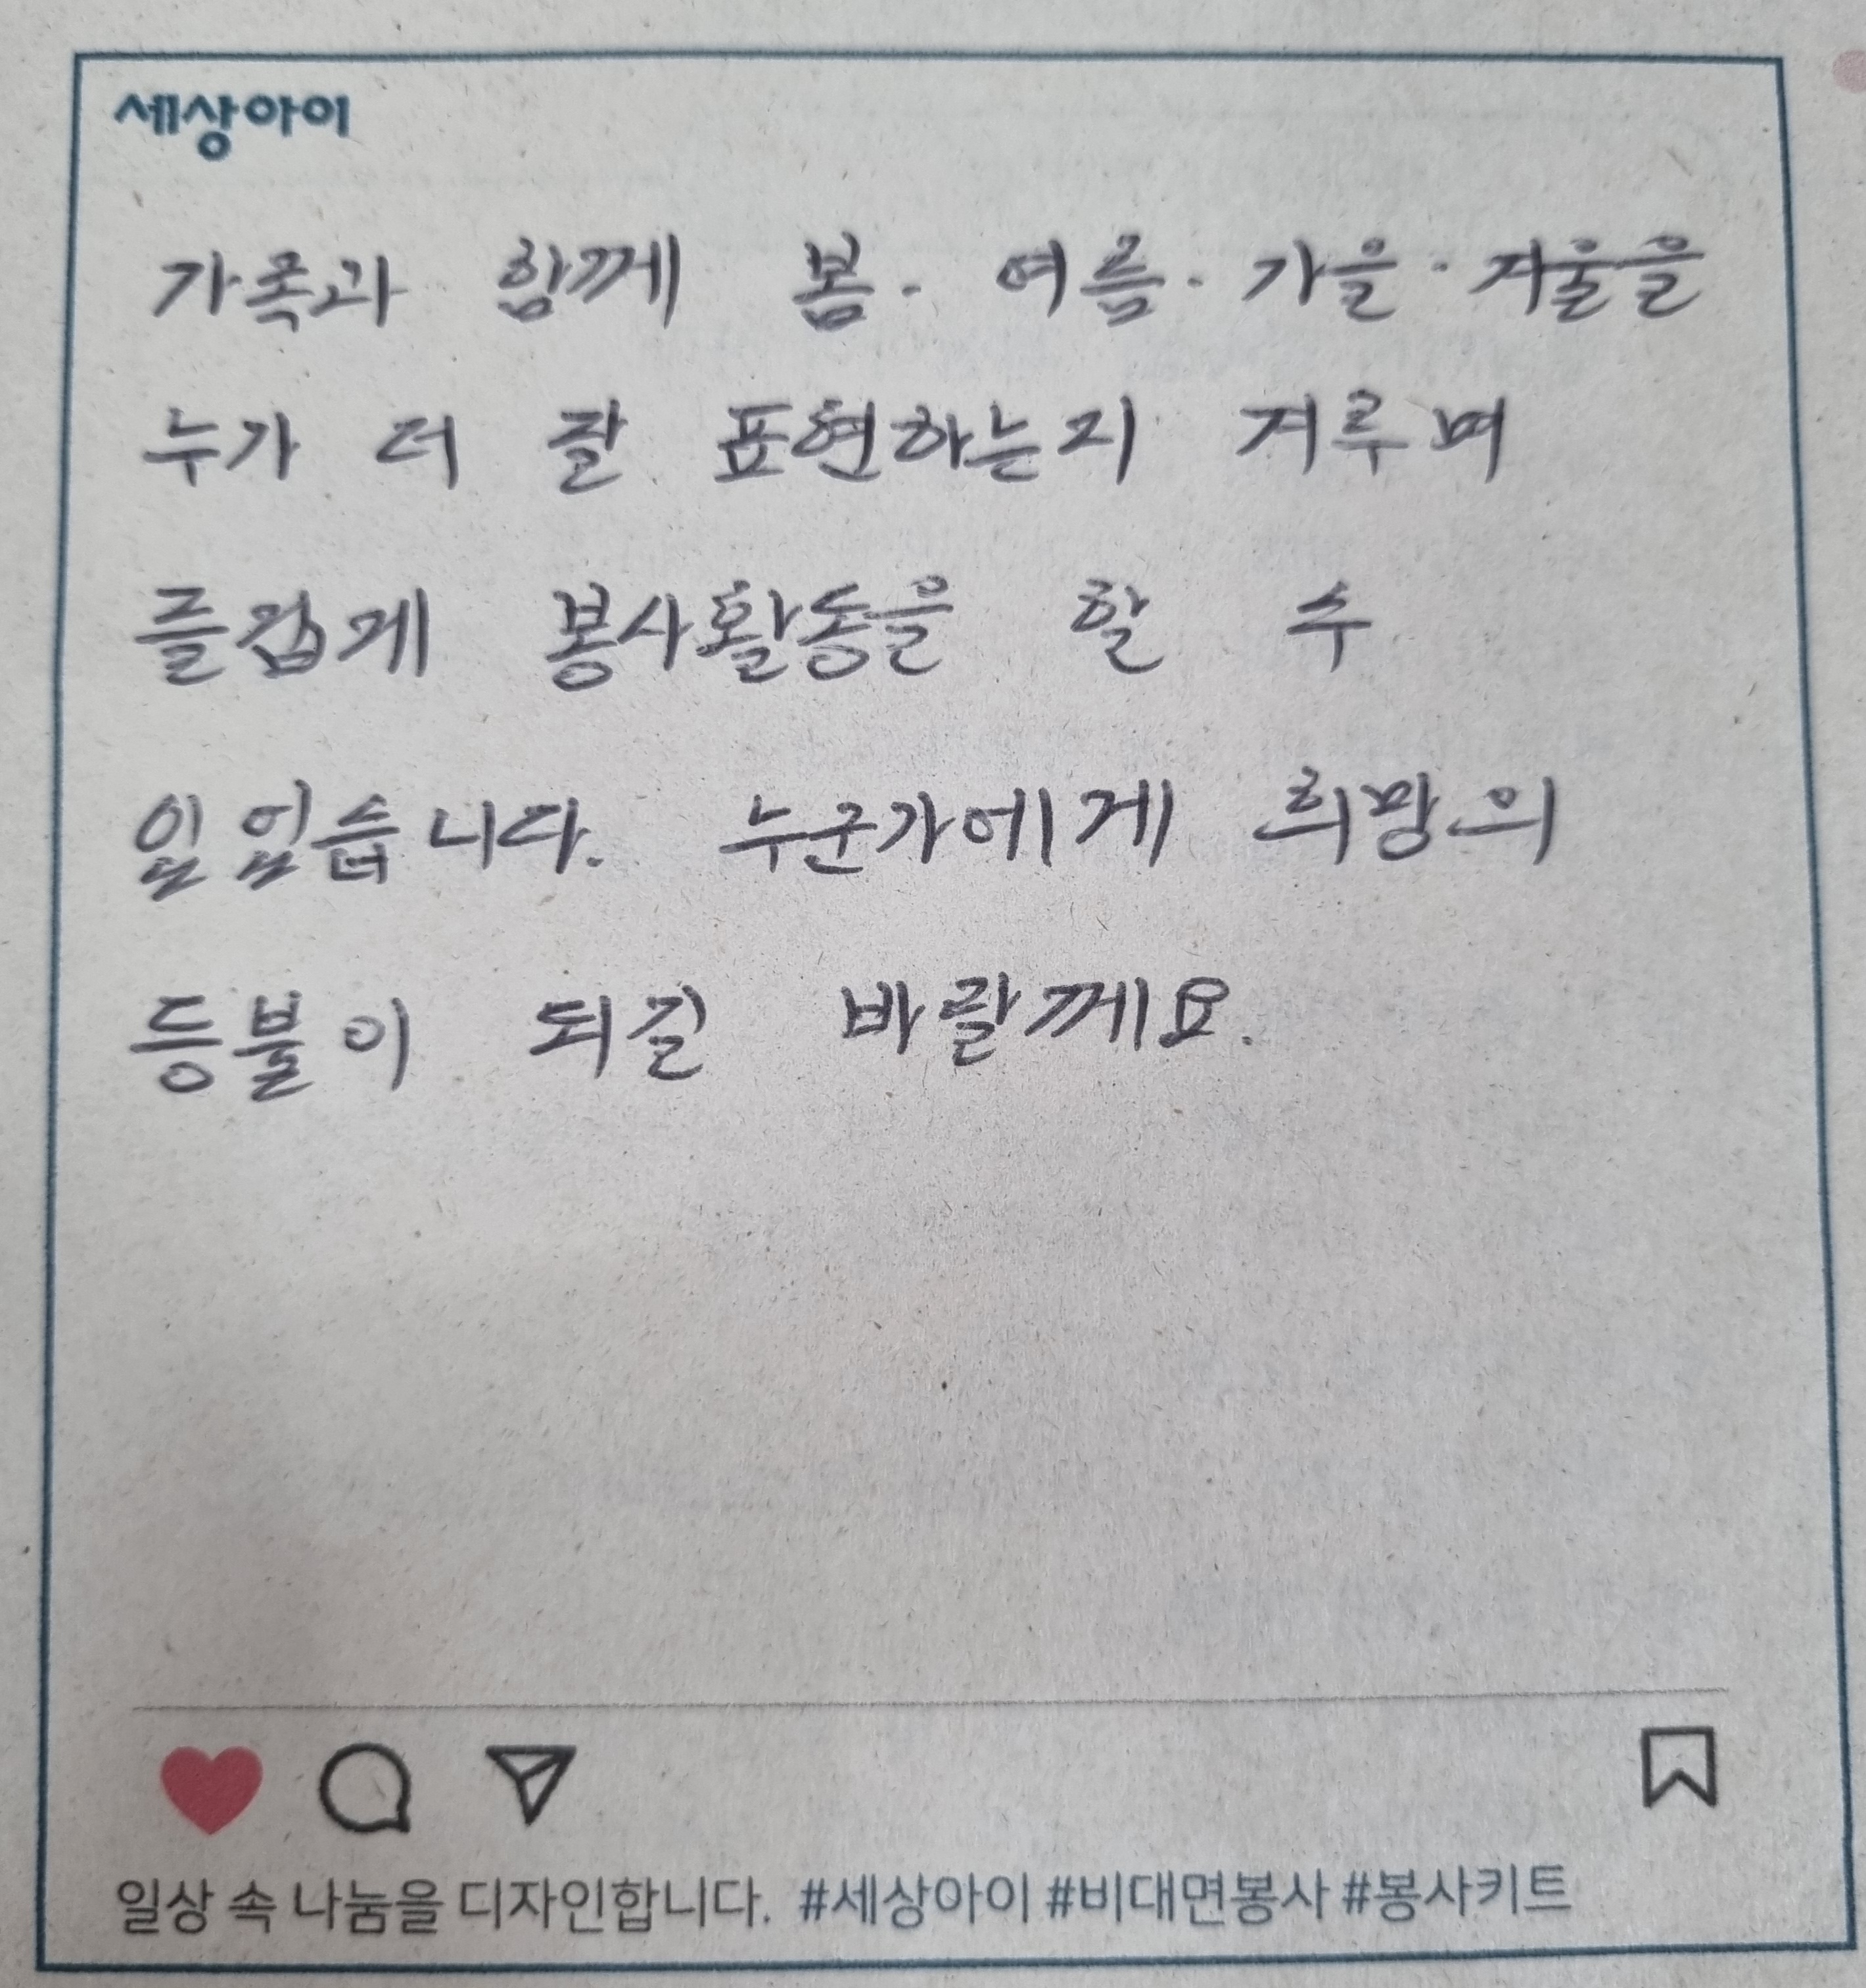 세상아이
가족과 함께 봄· 여름· 가을· 겨울을
누가 더 잘 표현하는지 겨루며
즐겁게 봉사활동을 할 수
있었습니다. 누군가에게 희망의
등불이 되길 바랄께요.
일상 속 나눔을 디자인합니다. #세상아이 #비대면봉사 #봉사키트